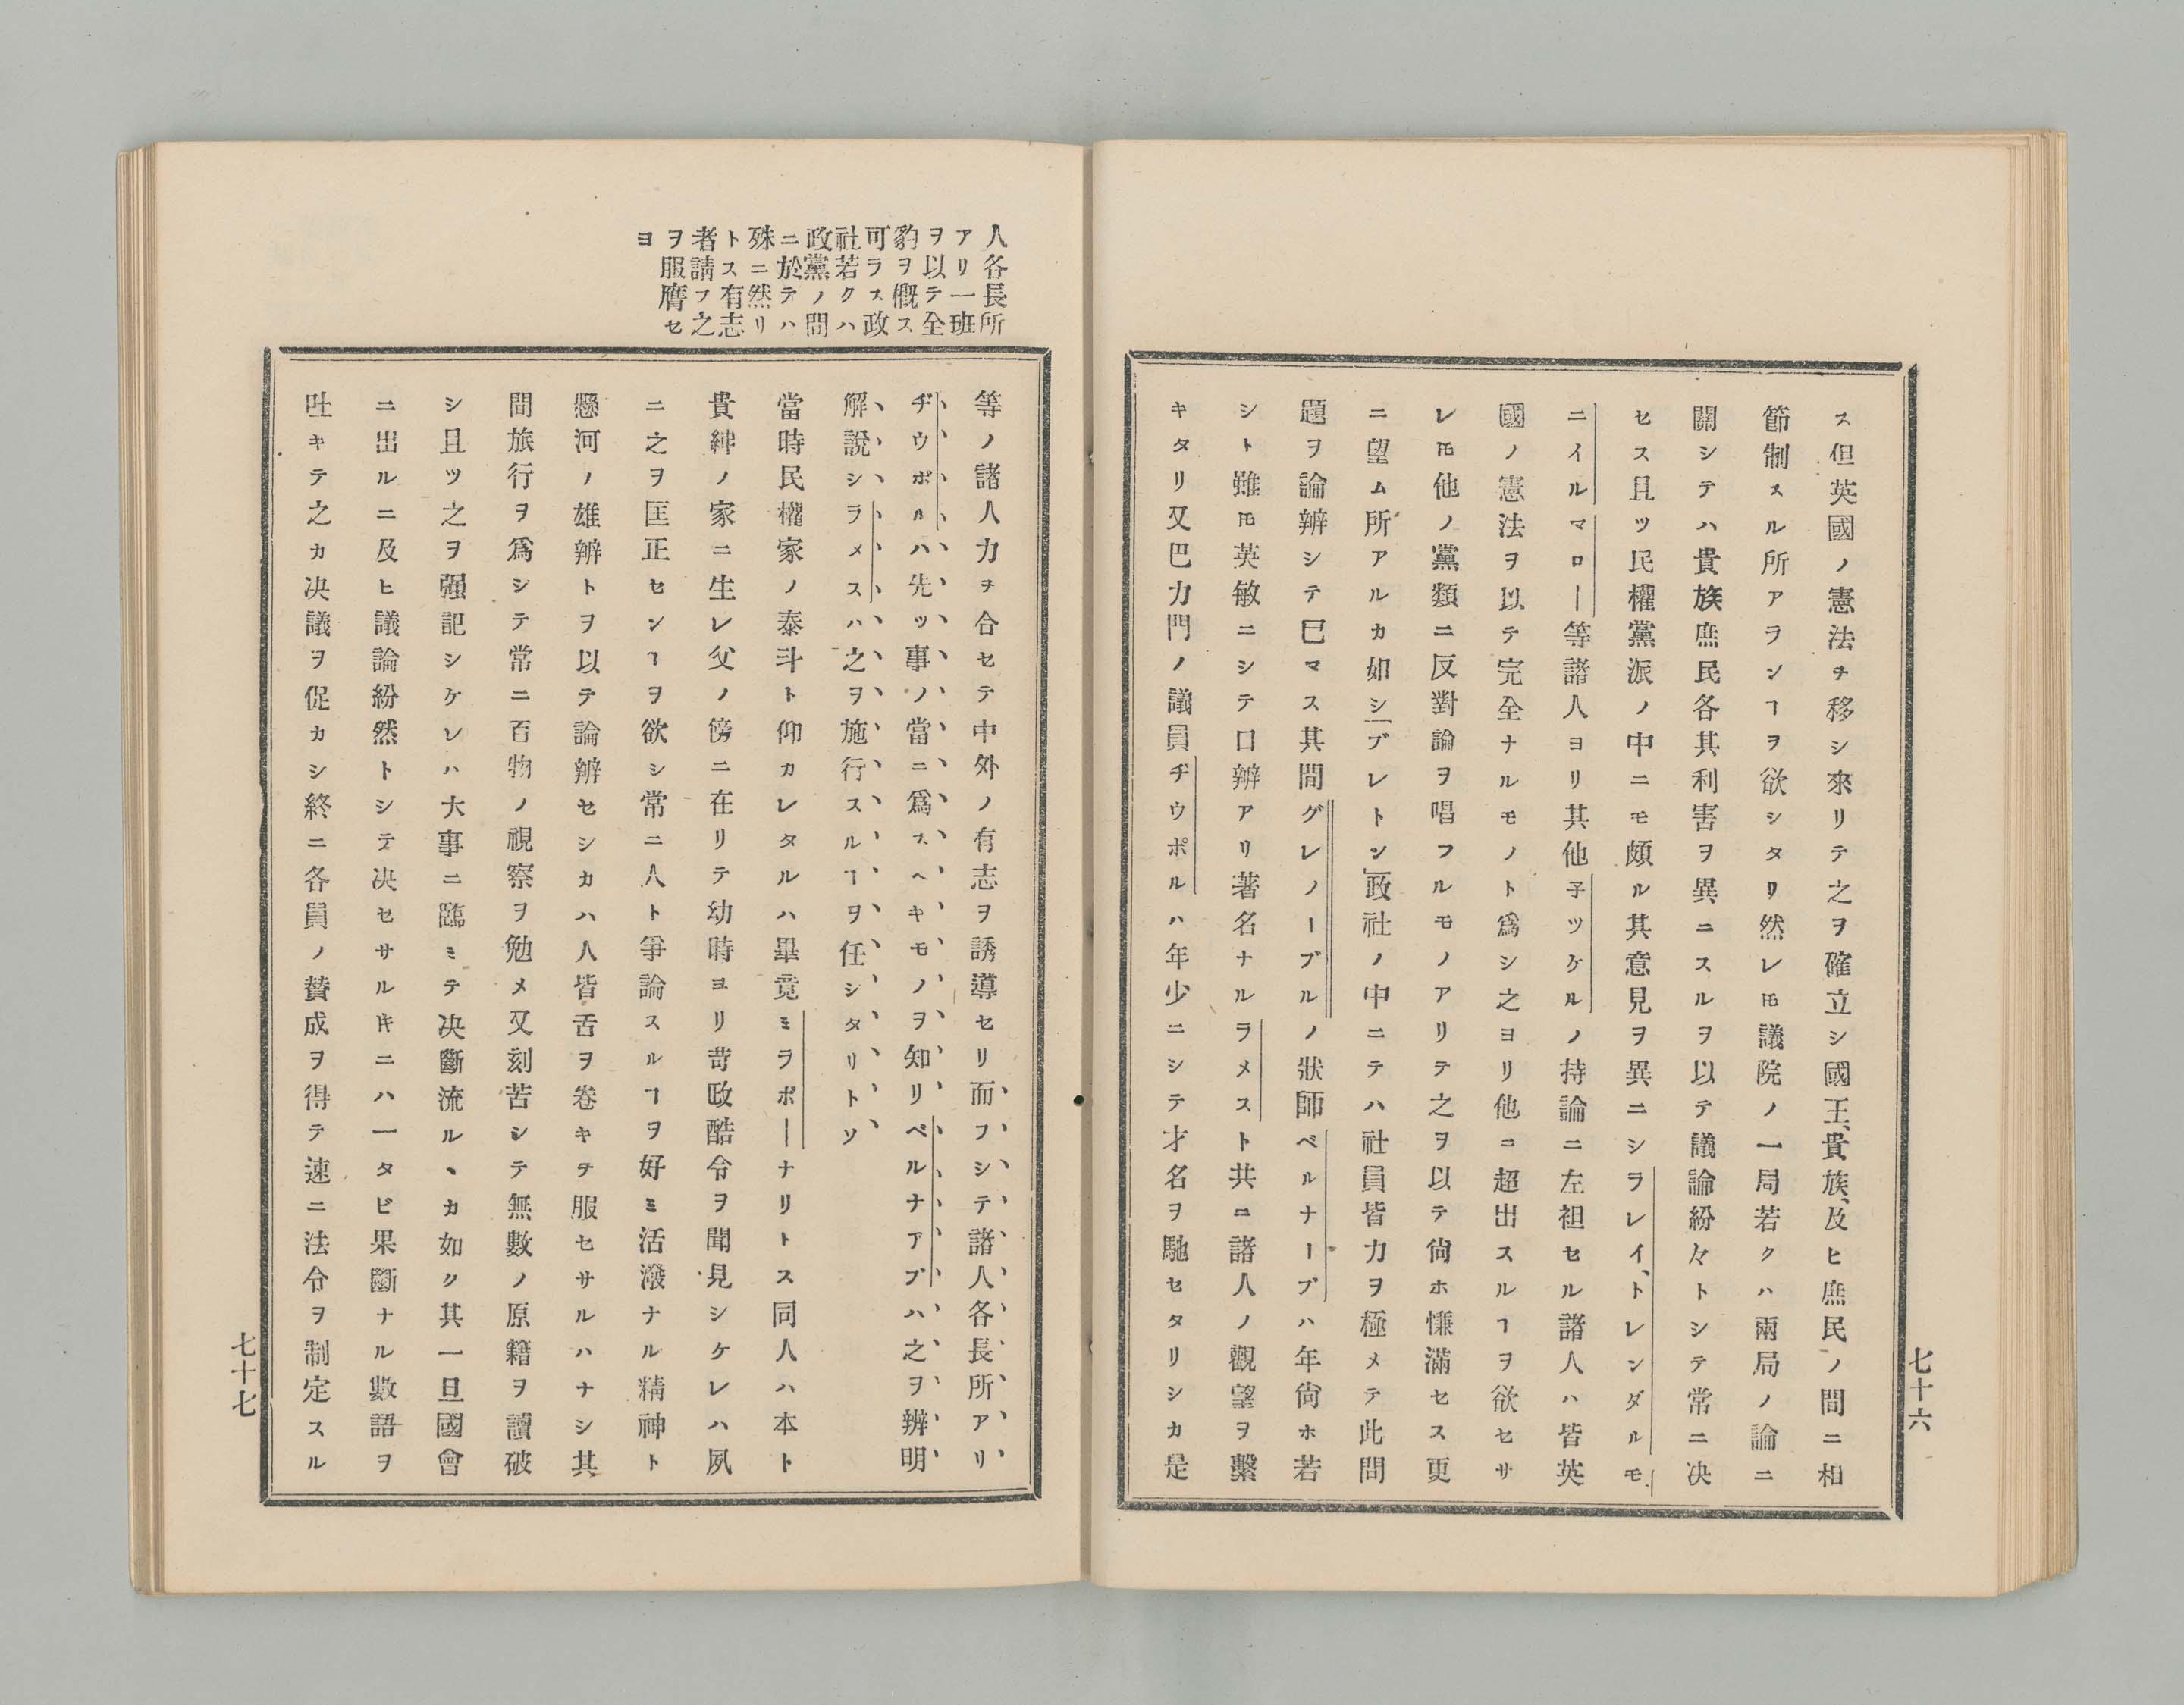 ス但英國ノ憲法ヲ移シ來リテ之ヲ確立シ國王、貴族、及ヒ庶民ノ間ニ相
節制スル所アランヿヲ欲シタリ然レ𪜈議院ノ一局若クハ兩局ノ論ニ
關シテハ貴族庶民各其利害ヲ異ニスルヲ以テ議論紛々トシテ常ニ决
セス且ツ民權黨派ノ中ニモ頗ル其意見ヲ異ニシヲレイ、トレンダルモ
ニイルマロー等諸人ヨリ其他子ツケルノ持論ニ左袒セル諸人ハ皆英
國ノ憲法ヲ以テ完全ナルモノト爲シ之ヨリ他ニ超出スルヿヲ欲セサ
レ𪜈他ノ黨類ニ反對論ヲ唱フルモノアリテ之ヲ以テ尙ホ慊滿セス更
ニ望ム所アルカ如シ「ブレトン」政社ノ中ニテハ社員皆力ヲ極メテ此問
題ヲ論辨シテ巳マス其間グレノーブルノ狀師ベルナーブハ年尙ホ若
シト雖𪜈英敏ニシテ口辨アリ著名ナルラメストト共ニ諸人ノ觀望ヲ繫
キタリ又巴力門ノ議員ヂウポルハ年少ニシテ才名ヲ馳セタリシカ是
七十六
人各長所
アリ一班
ヲ以テ全
豹ヲ槪ス
可ラス政
社若クハ
政黨ノ間
ニ於テハ
殊ニ然リ
トス有志
者請フ之
ヲ服膺セ
ヨ
等ノ諸人力ヲ合セテ中外ノ有志ヲ誘導セリ而フシテ諸人各長所アリ
ヂウポルハ先ッ事ノ當ニ爲スヘキモノヲ知リベルナアブハ之ヲ辨明
解說シラメスハ之ヲ施行スルヿヲ任シタリトソ
當時民權家ノ泰斗ト仰カレタルハ畢竟ミラボーナリトス同人ハ本ト
貴紳ノ家ニ生レ父ノ傍ニ在リテ幼時ヨリ苛政酷令ヲ聞見シケレハ夙
ニ之ヲ匡正センヿヲ欲シ常ニ人ト爭論スルヿヲ好ミ活潑ナル精神ト
懸河ノ雄辨トヲ以テ論辨セシカハ人皆舌ヲ卷キテ服セサルハナシ其
間旅行ヲ爲シテ常ニ百物ノ視察ヲ勉メ又刻苦シテ無數ノ原籍ヲ讀破
シ且ツ之ヲ强記シケレハ大事ニ臨ミテ决斷流ルヽカ如ク其一旦國會
ニ出ルニ及ヒ議論紛然トシテ决セサルキニハ一タビ果斷ナル數語ヲ
吐キテ之カ决議ヲ促カシ終ニ各員ノ贊成ヲ得テ速ニ法令ヲ制定スル
七十七